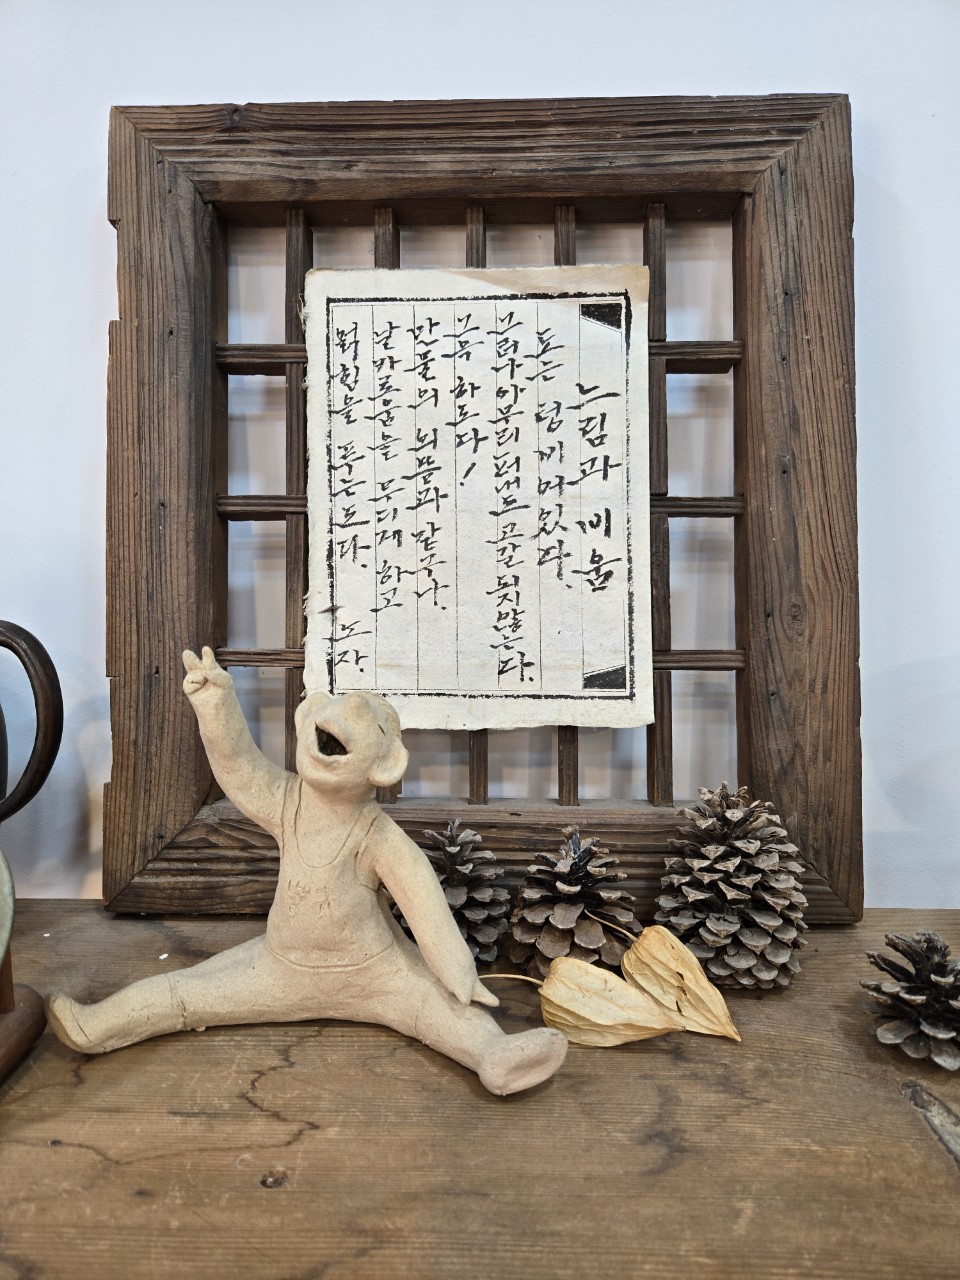 느림과 비움
도는 텅 비어있다.
그러나 아무리 퍼내도 고갈 되지 않는다.
그윽 하도다!
만물의 으뜸과 같구나.
날카로움을 무디게 하고
얽힘을 푸는도다. 노자.